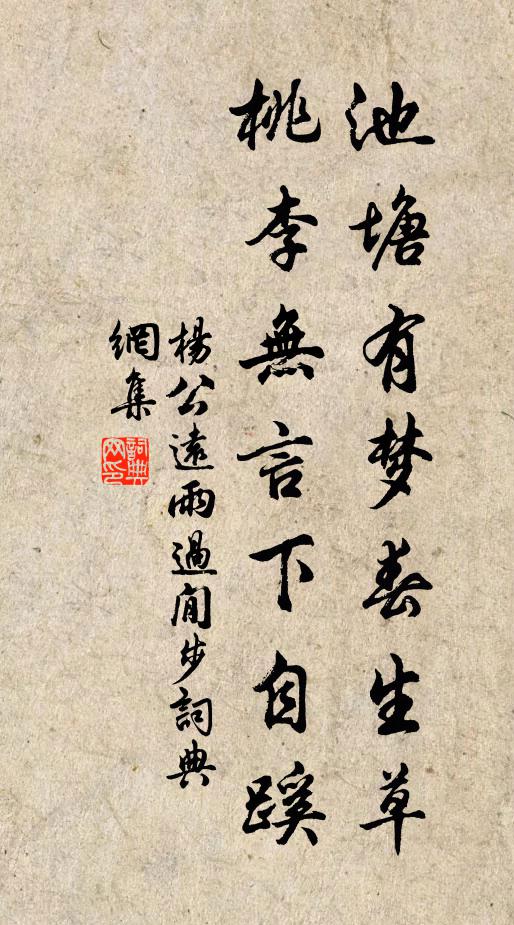 池塘有梦春生草
桃李無言下自蹊
楊公遠雨過閒步詞典
網集
詞典网印